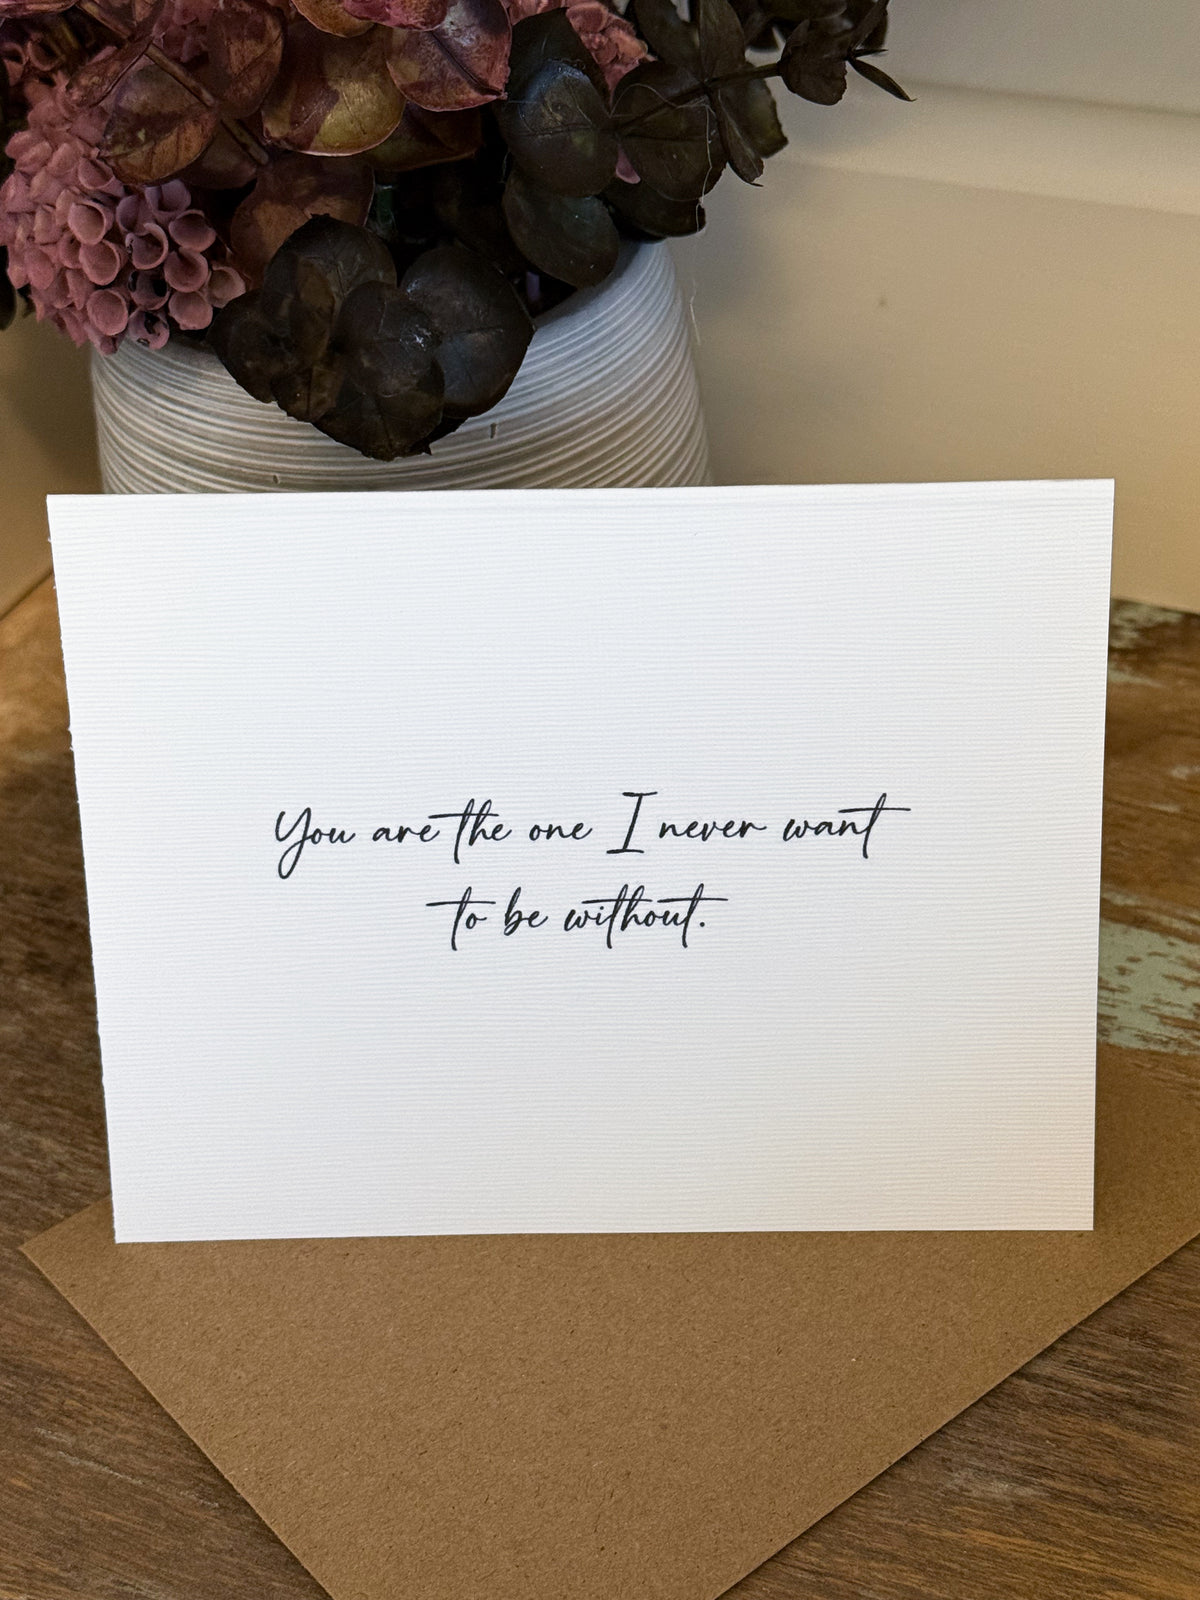 You are the one I never want
to be without.